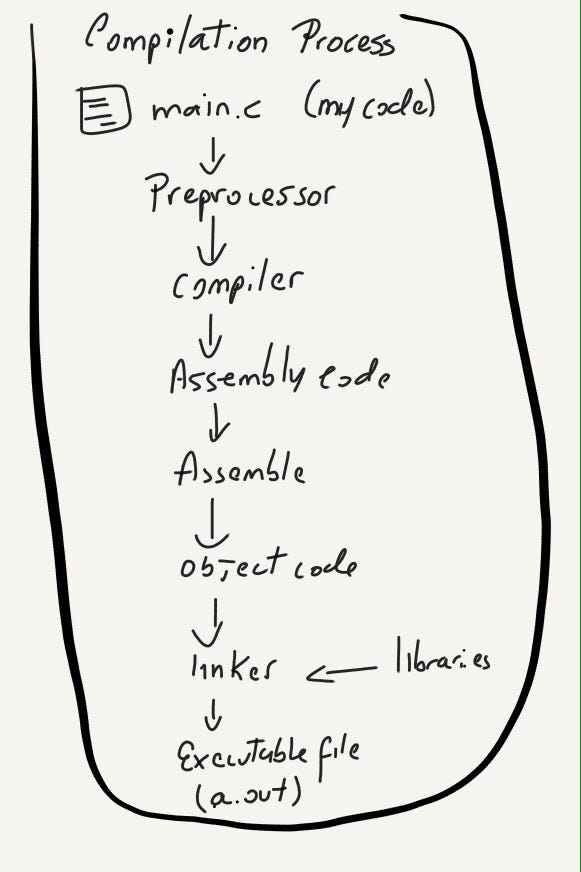 Compilation Process
main.c (my code)
Preprocessor
Compiler
Assembly code
Assemble
object code
linker ← libraries
Executable file
(a.out)